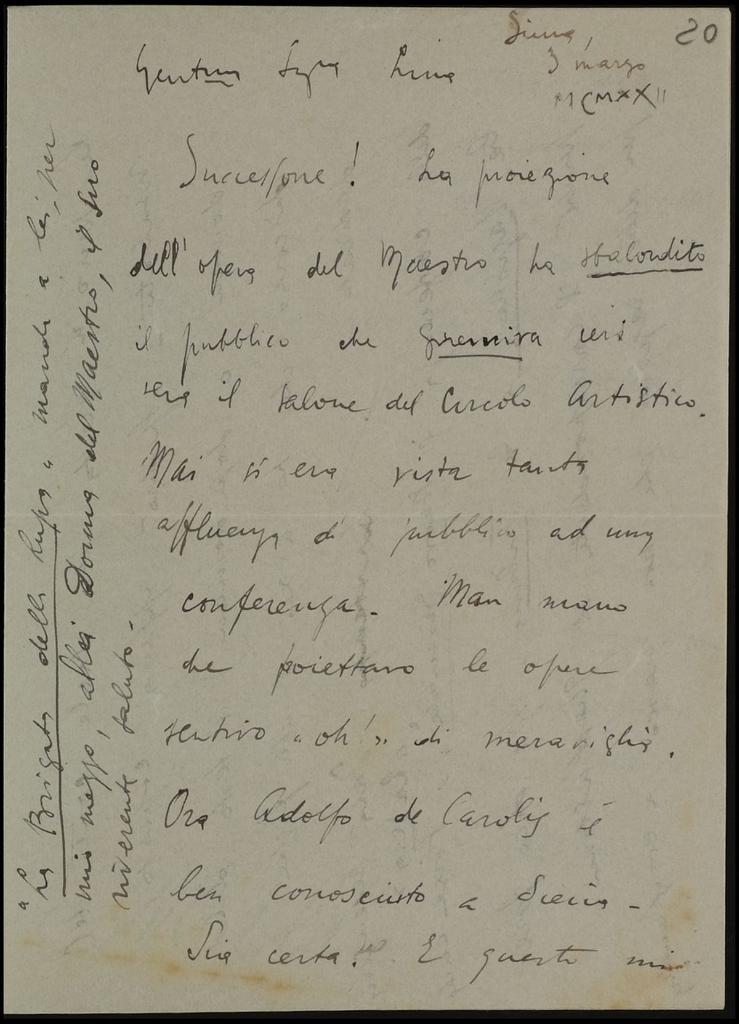 20
Siena,
3 marzo
MCMXXII
Gentma Sigra Lina
Successone! La proiezione
dell'opera del Maestro ha sbalordito
il pubblico che gremiva ieri
sera il salone del Circolo Artistico.
Mai si era vista tanta
affluenza di pubblico ad una
conferenza. Man mano
che proiettavo le opere
sentivo "oh!" di meraviglia.
Ora Adolfo de Carolis è
ben conosciuto a Siena -
Sia certa. E questo mi
"La Brigata della Lupa" manda a lei, per
mio mezzo, alla Donna del Maestro, il suo
riverente saluto.